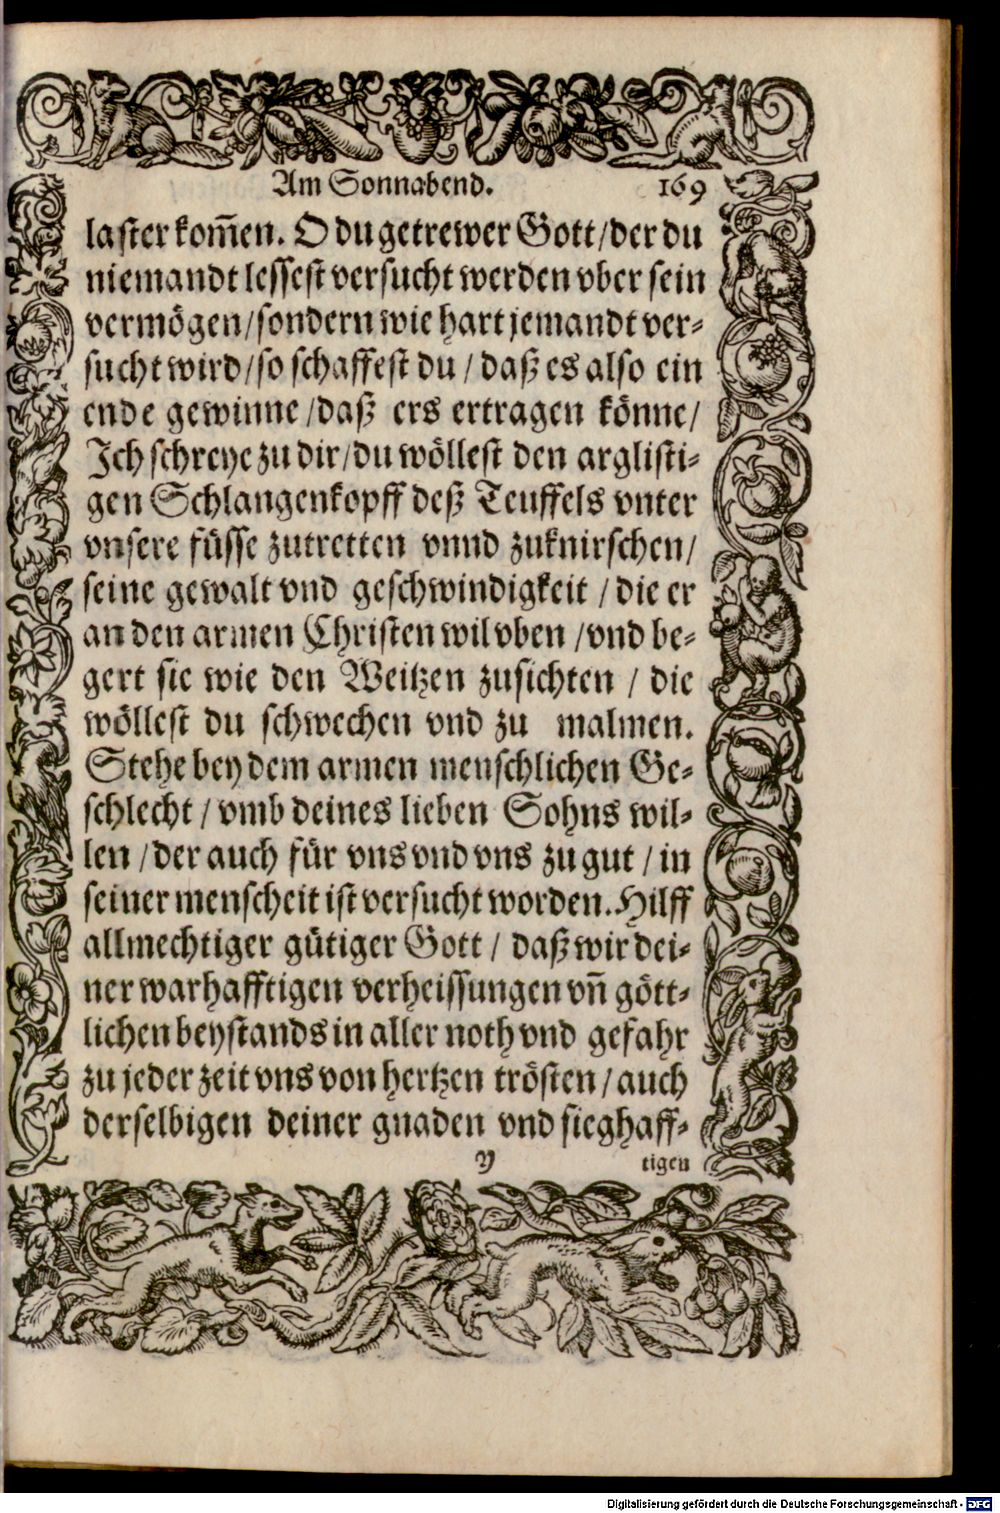 Am Sonnabend. 169
laster kom̃en. O du getrewer Gott/der du
niemandt lessest versucht werden vber sein
vermögen/sondern wie hart jemandt ver-
sucht wird/so schaffest du / daß es also ein
ende gewinne /daß ers ertragen könne/
Ich schreye zu dir/du wöllest den arglisti-
gen Schlangenkopff deß Teuffels vnter
vnsere füsse zutretten vnnd zuknirschen/
seine gewalt vnd geschwindigkeit / die er
an den armen Christen wil vben /vnd be-
gert sie wie den Weitzen zusichten / die
wöllest du schwechen vnd zu malmen.
Stehe bey dem armen menschlichen Ge-
schlecht / vmb deines lieben Sohns wil-
len /der auch für vns vnd vns zu gut / in
seiner menscheit ist versucht worden. Hilff
allmechtiger gütiger Gott / daß wir dei-
ner warhafftigen verheissungen vñ gött-
lichen beystands in aller noth vnd gefahr
zu jeder zeit vns von hertzen trösten/auch
derselbigen deiner gnaden vnd sieghaff-
Y tigen
Digitalisierung gefördert durch die Deutsche Forschungsgemeinschaft - DFG